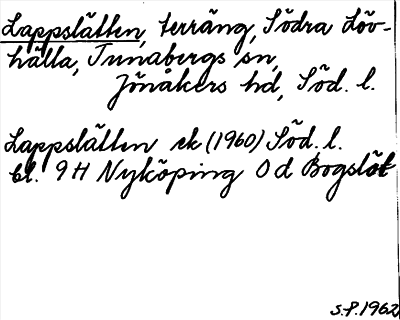 Lappslätten, terräng, Södra Löv-
hälla, Tunabergs sn,
Jönåkers hd, Söd. l.
Lappslätten ek (1960) Söd. l.
bl. 9H Nyköping 0 d Bogslöt
S.P. 1962